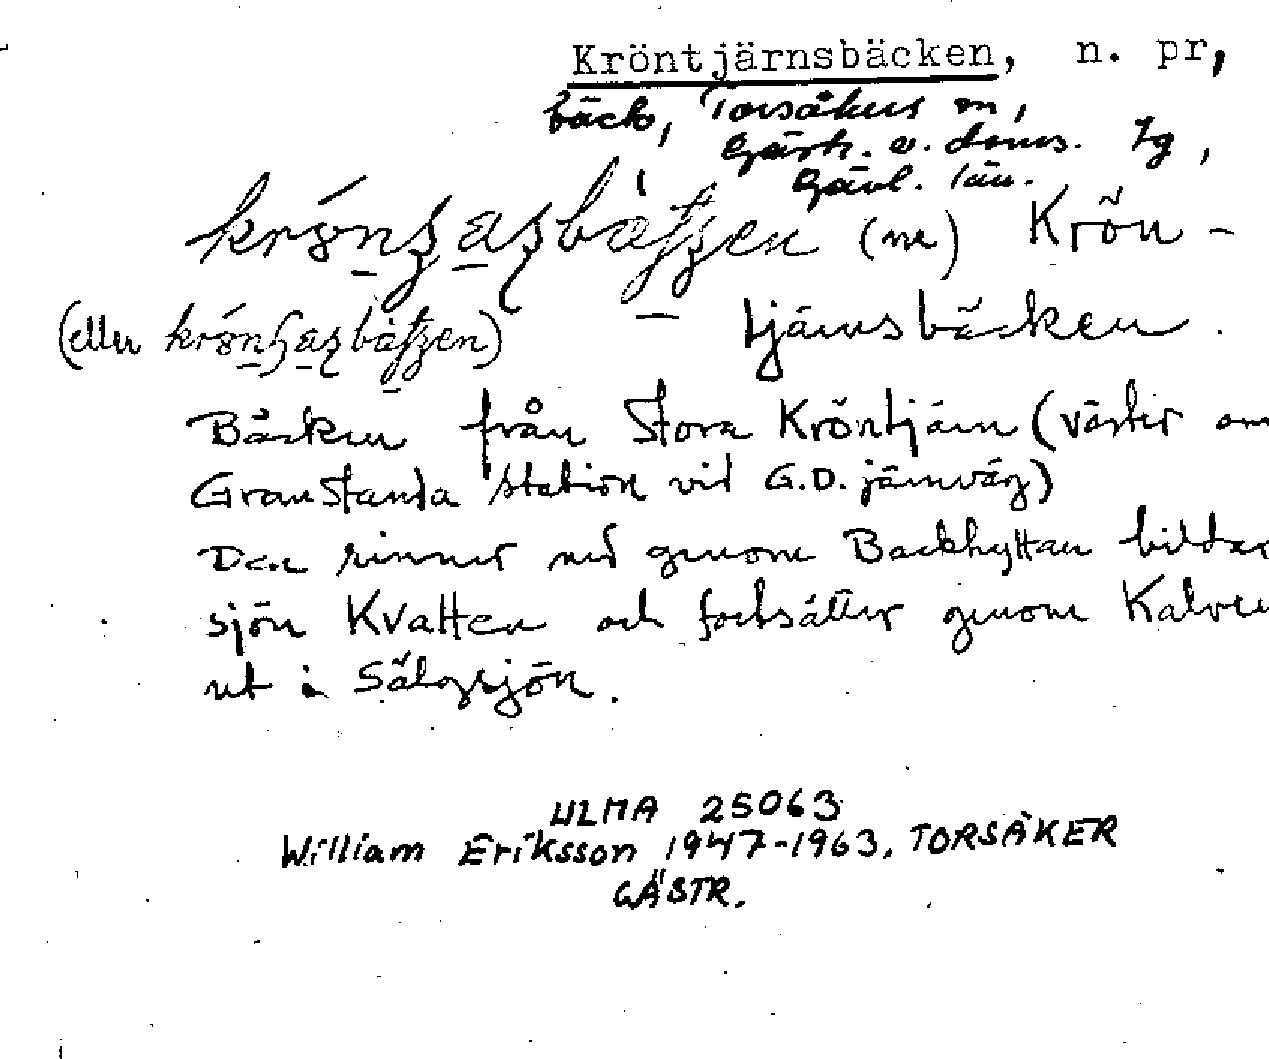 Kröntjärnsbäcken, n. pr,
bäck, Torsåkers sn,
Gästr. ö. doms. Tg,
Gävl. län.
(m) Krön-
(eller
tjärnsbäcken.
Bäcken från Stora Kröntjärn (väster om
Granstanda station vid G.D. järnväg)
Den rinner ned genom Backhyttan bildar
sjön Kvatten och fortsätter genom Kalven
ut i Sälgsjön.
ULMA 25063
William Eriksson 1947-1963, TORSÅKER
GÄSTR.